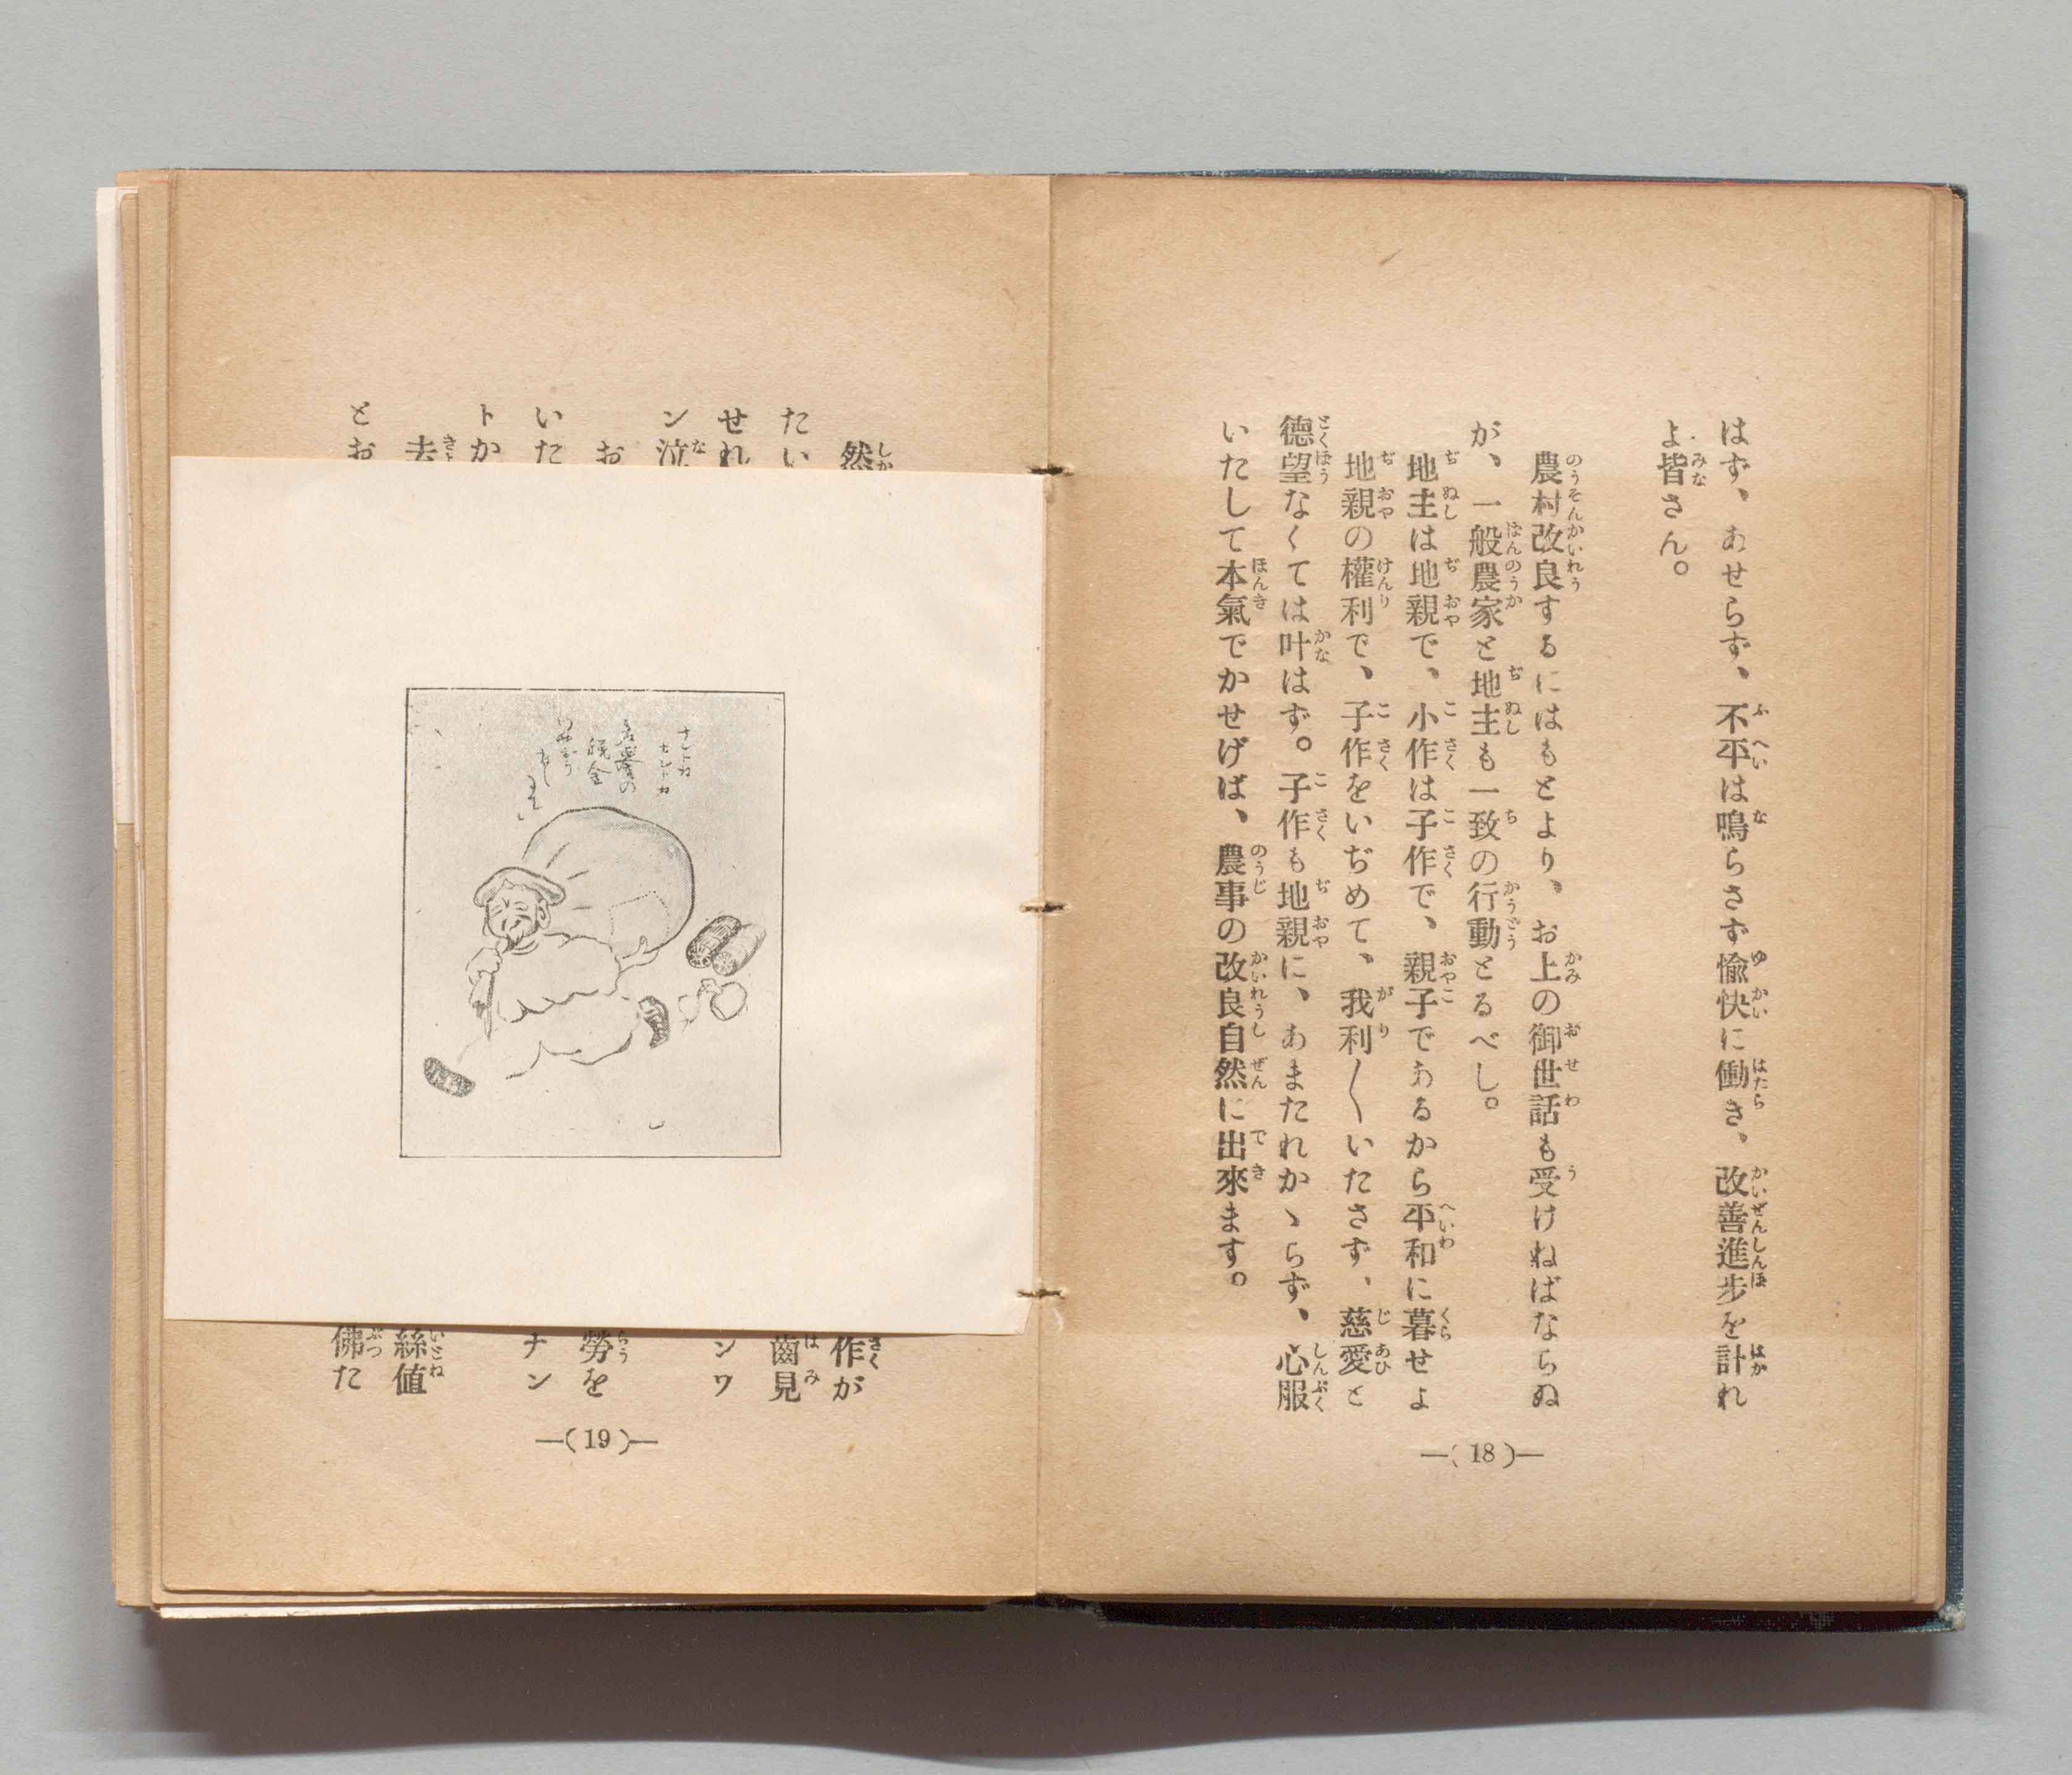 はず、あせらず、不平は鳴らさず愉快に働き、改善進步を計れ
よ皆さん。
農村改良するにはもとより、お上の御世話も受けねばならぬ
が、一般農家と地主も一致の行動とるべし。
地主は地親で、小作は子作で、親子であるから平和に暮せよ
地親の權利で、子作をいぢめて、我利〱いたさず、慈愛と
德望なくては叶はず。子作も地親に、あまたれかゝらず、心服
いたして本氣でかせげば、農事の改良自然に出來ます。
—(18)—
然
作が
たい
齒見
せれ
ン泣
ンワ
お
勞を
いた
ナン
トか
去
絲値
とお
佛た
—(19)—
ナントカ
カントカ
名譽の
税金